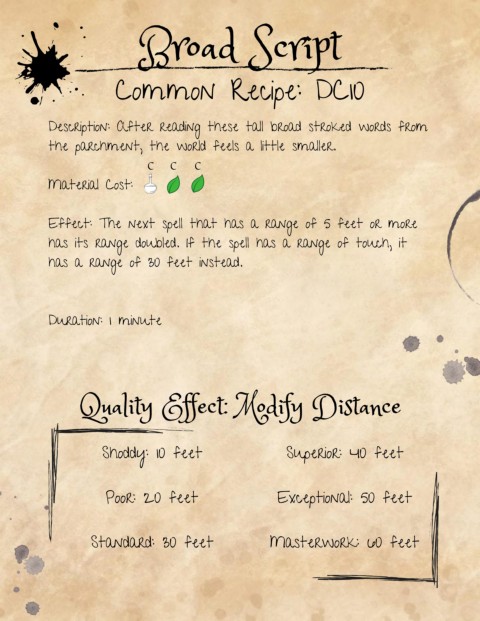 Broad Script
Common Recipe: DC10
Description: After reading these tall broad stroked words from
the parchment, the world feels a little smaller.
C C C
Material Cost:
Effect: The next spell that has a range of 5 feet or more
has its range doubled. If the spell has a range of touch, it
has a range of 30 feet instead.
Duration: 1 minute
Quality Effect: Modify Distance
Shoddy: 10 feet
Superior: 40 feet
Poor: 20 feet
Exceptional: 50 feet
Standard: 30 feet
Masterwork: 60 feet